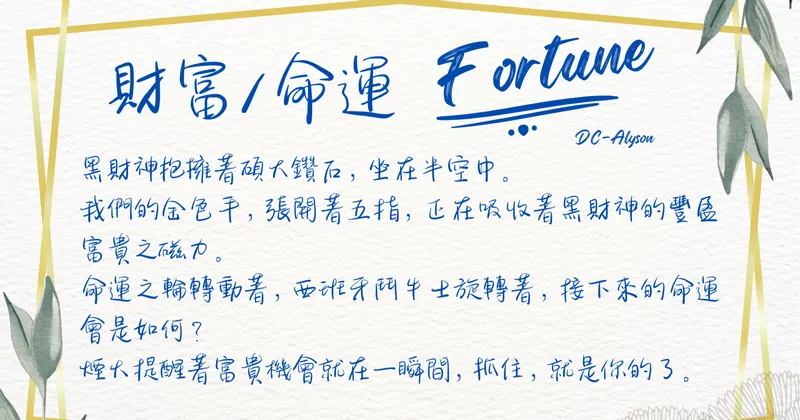 財富/命運 Fortune
DC-Alyson
黑財神抱擁著碩大鑽石，坐在半空中。
我們的金色手，張開著五指，正在吸收著黑財神的豐盈
富貴之磁力。
命運之輪轉動著，西班牙鬥牛士旋轉著，接下來的命運
會是如何？
煙火提醒著富貴機會就在一瞬間，抓住，就是你的了。